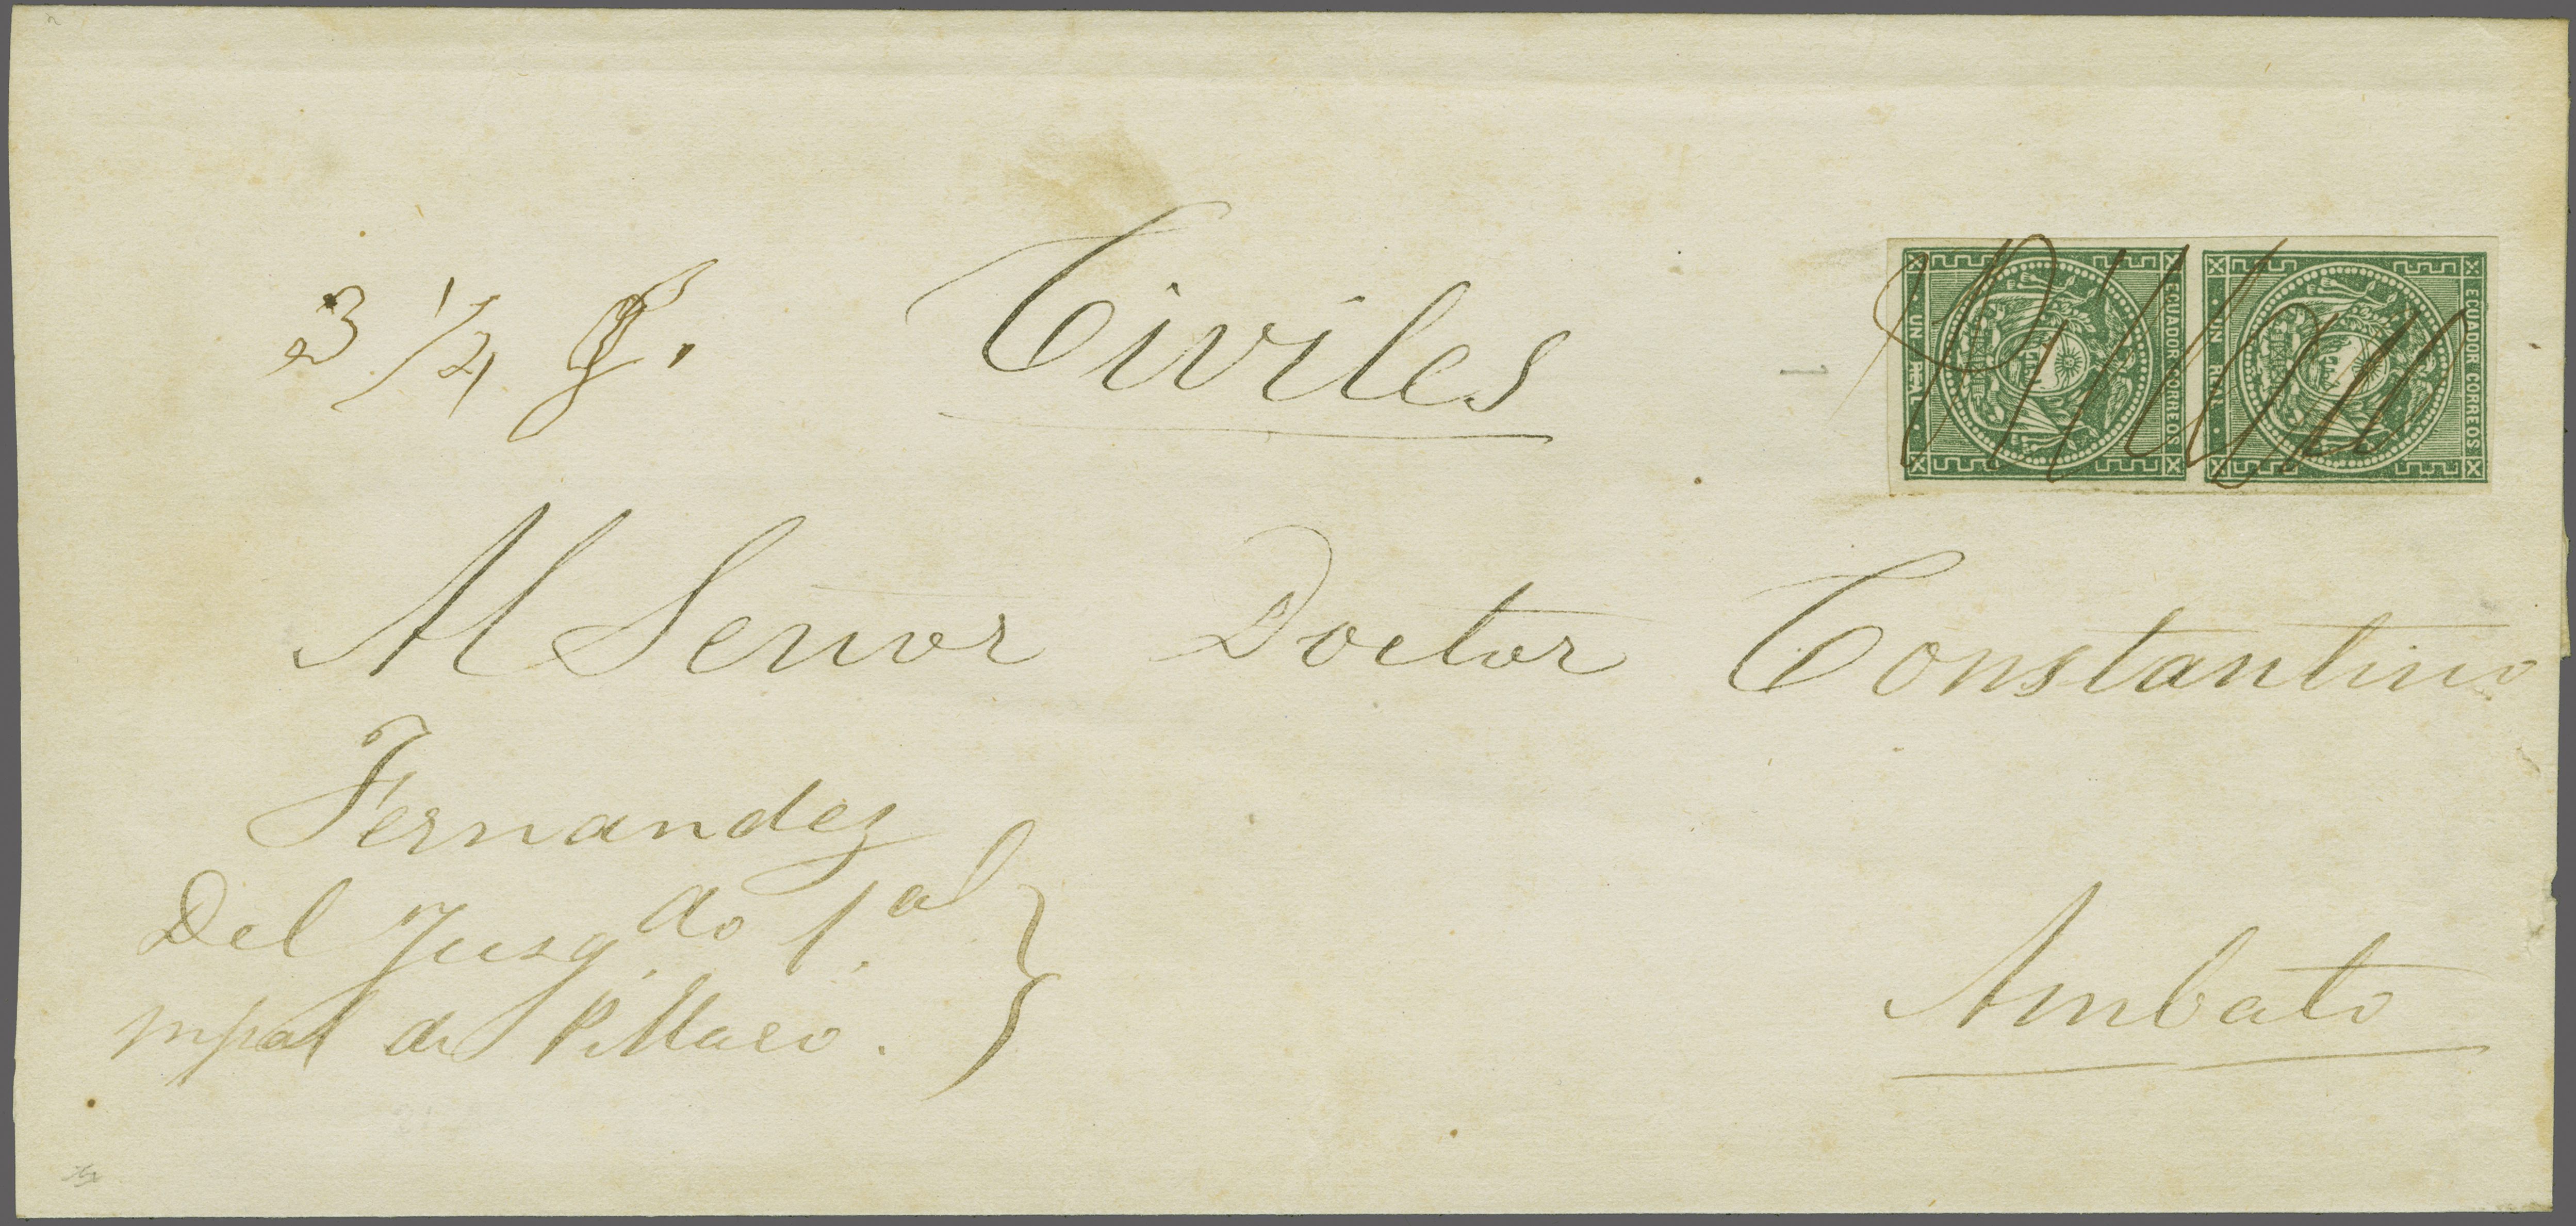 3 1/4
Civiles
ECUADOR CORREOS
UN REAL
ECUADOR CORREOS
UN REAL
Pillaro
Al Senor Doctor Constantino
Fernandez
Del Jusg.do 1.al
mpal de Pillaro.
Ambato